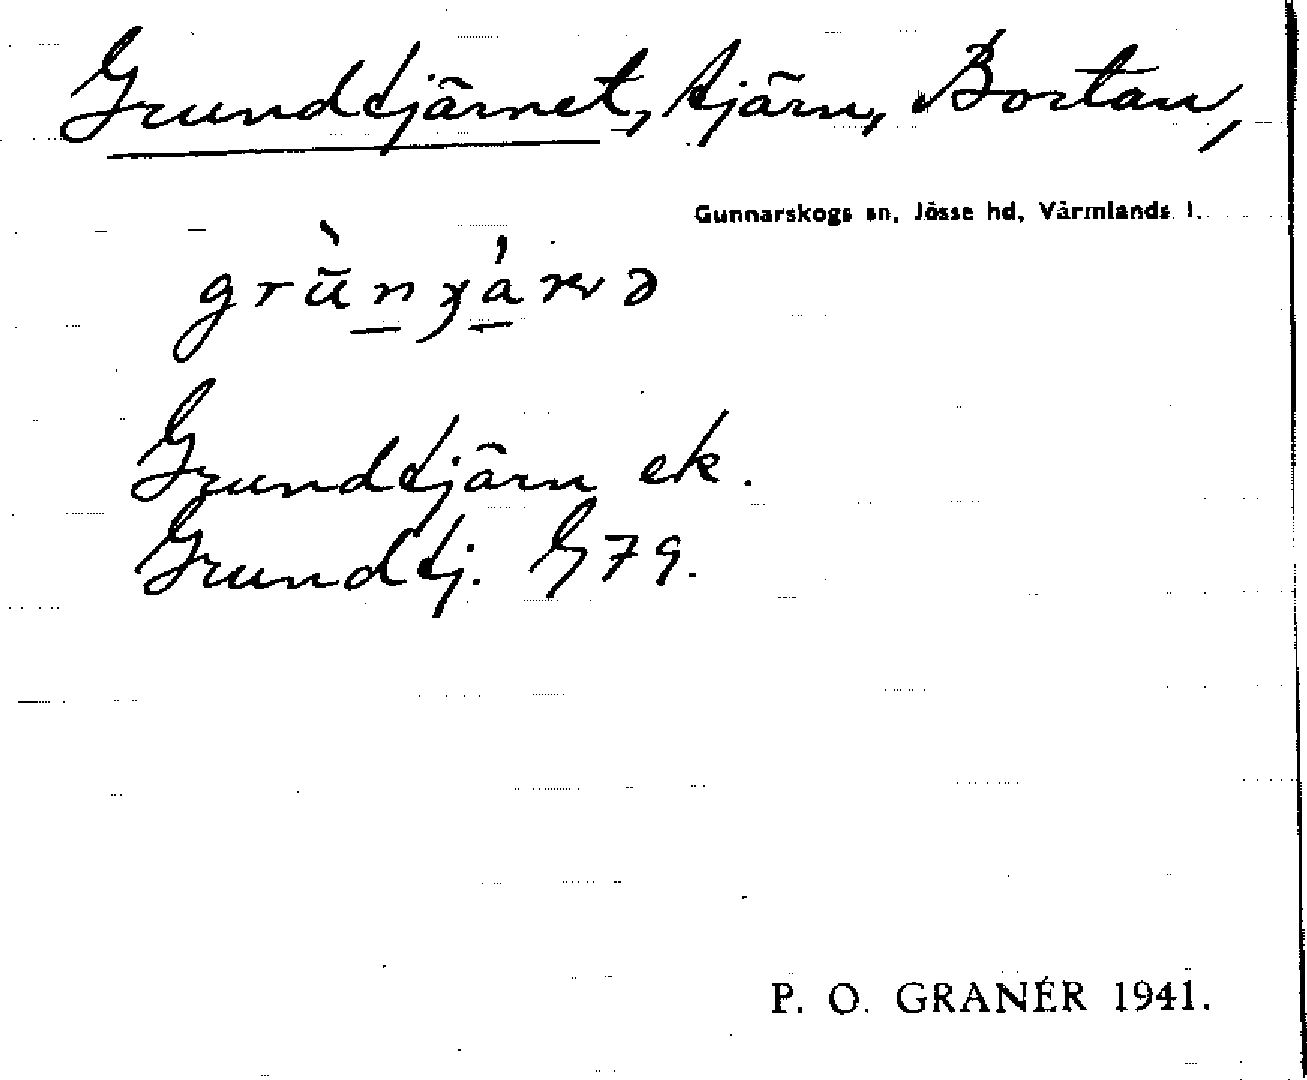 Grundtjärnet, tjärn, Bortan,
Gunnarskogs sn, Jösse hd, Värmlands l.
Grundtjärn ek.
Grundtj. G79.
P. O. GRANÉR 1941.